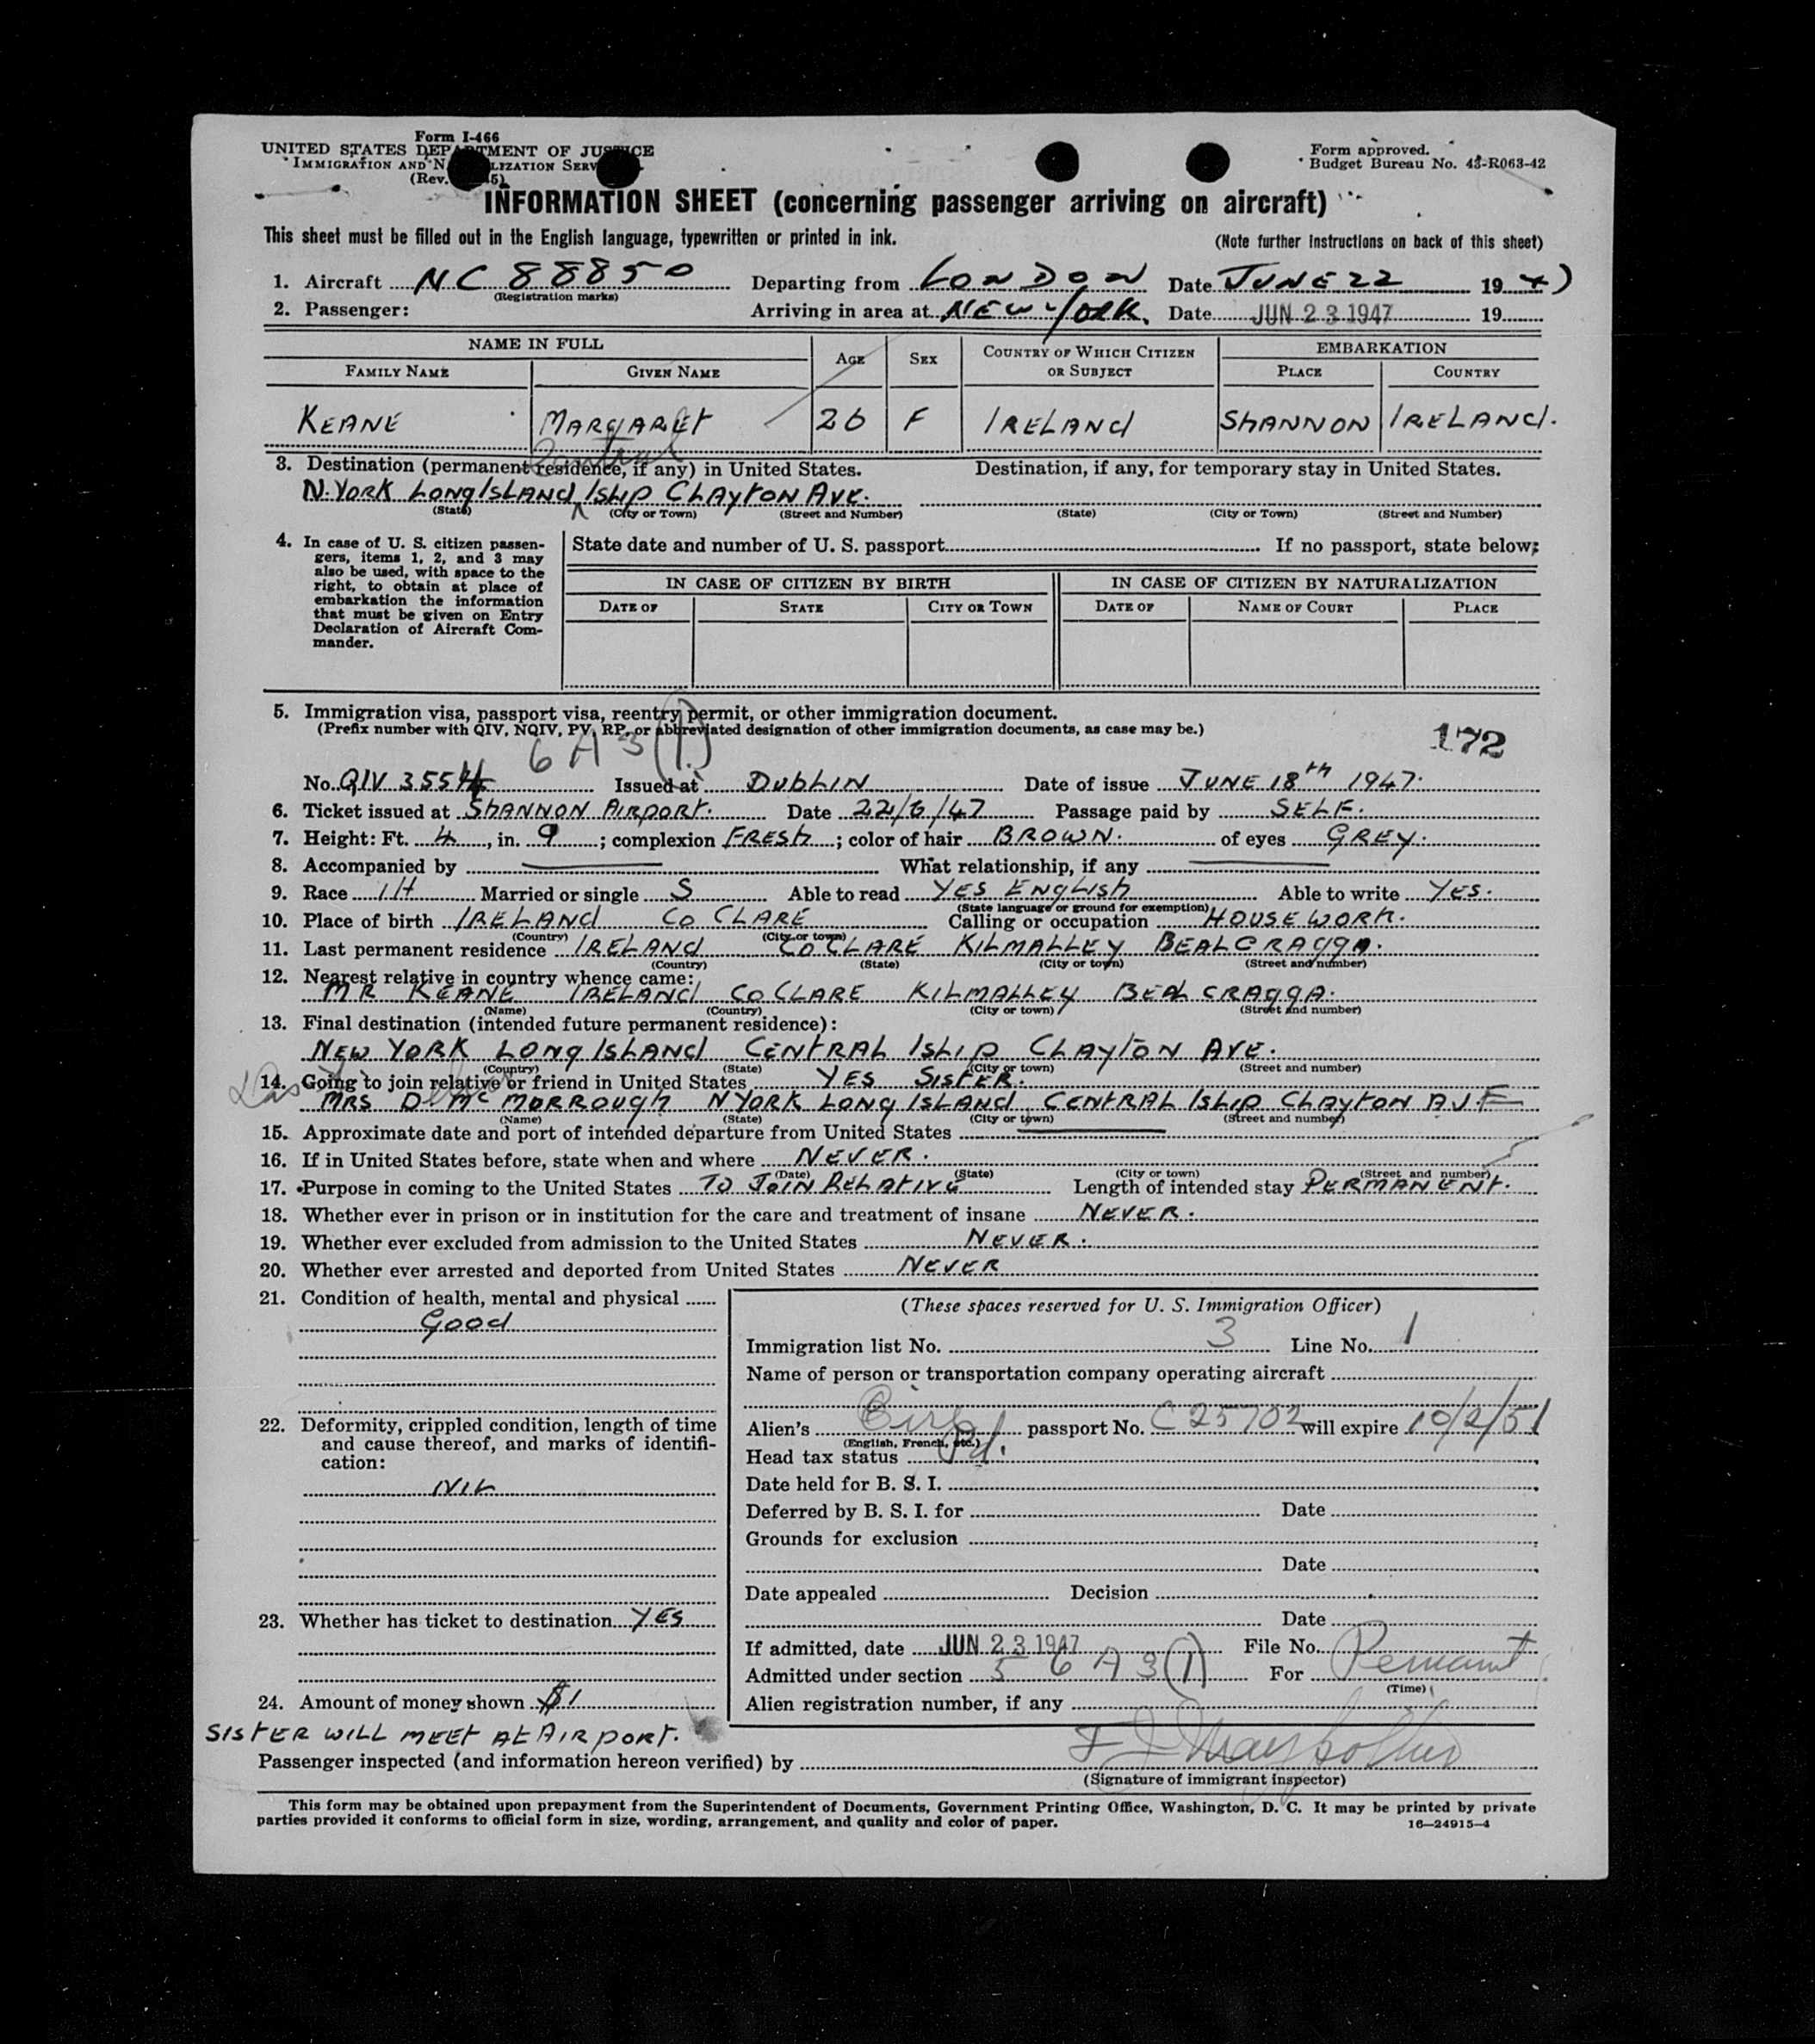 Form I-466
UNITED STATES DEPARTMENT OF JUSTICE
IMMIGRATION AND N LIZATION SERV
(Rev. 5)
Form approved.
Budget Bureau No. 43-R063-42
INFORMATION SHEET (concerning passenger arriving on aircraft)
This sheet must be filled out in the English language, typewritten or printed in ink. (Note further instructions on back of this sheet)
1. Aircraft NC 88850 Departing from LONDON Date JUNE 22 1947
(Registration marks)
2. Passenger: Arriving in area at NEW YORK. Date JUN 23 1947 19
NAME IN FULL AGE SEX COUNTRY OF WHICH CITIZEN OR SUBJECT EMBARKATION
FAMILY NAME GIVEN NAME PLACE COUNTRY
KEANE MARGARET 26 F IRELAND SHANNON IRELAND.
3. Destination (permanent residence, if any) in United States. Destination, if any, for temporary stay in United States.
Central
N. YORK LONG ISLAND ISLIP CLAYTON AVE.
(State) (City or Town) (Street and Number) (State) (City or Town) (Street and Number)
4. In case of U. S. citizen passen-
gers, items 1, 2, and 3 may
also be used, with space to the
right, to obtain at place of
embarkation the information
that must be given on Entry
Declaration of Aircraft Com-
mander.
State date and number of U. S. passport If no passport, state below:
IN CASE OF CITIZEN BY BIRTH IN CASE OF CITIZEN BY NATURALIZATION
DATE OF STATE CITY OR TOWN DATE OF NAME OF COURT PLACE
5. Immigration visa, passport visa, reentry permit, or other immigration document.
(Prefix number with QIV, NQIV, PV, RP, or abbreviated designation of other immigration documents, as case may be.)
172
6 A 3 (1)
No. QIV 3554 Issued at DUBLIN Date of issue JUNE 18th 1947.
6. Ticket issued at SHANNON AIRPORT. Date 22/6/47 Passage paid by SELF.
7. Height: Ft. 4, in. 9; complexion FRESH; color of hair BROWN. of eyes GREY.
8. Accompanied by What relationship, if any
9. Race IH Married or single S Able to read YES ENGLISH Able to write YES.
(State language or ground for exemption)
10. Place of birth IRELAND CO CLARE Calling or occupation HOUSEWORK.
(Country) (City or town)
11. Last permanent residence IRELAND CO CLARE KILMALLEY BEALCRAGGA.
(Country) (State) (City or town) (Street and number)
12. Nearest relative in country whence came:
MR KEANE IRELAND CO CLARE KILMALLEY BEALCRAGGA.
(Name) (Country) (City or town) (Street and number)
13. Final destination (intended future permanent residence):
NEW YORK LONG ISLAND CENTRAL ISLIP CLAYTON AVE.
(Country) (State) (City or town) (Street and number)
14. Going to join relative or friend in United States YES SISTER.
MRS D. Mc MORROUGH N YORK LONG ISLAND CENTRAL ISLIP CLAYTON AVE
(Name) (State) (City or town) (Street and number)
15. Approximate date and port of intended departure from United States
16. If in United States before, state when and where NEVER.
(Date) (State) (City or town) (Street and number)
17. Purpose in coming to the United States TO JOIN RELATIVE Length of intended stay PERMANENT.
18. Whether ever in prison or in institution for the care and treatment of insane NEVER.
19. Whether ever excluded from admission to the United States NEVER.
20. Whether ever arrested and deported from United States NEVER
21. Condition of health, mental and physical
Good
22. Deformity, crippled condition, length of time
and cause thereof, and marks of identifi-
cation:
NIL
23. Whether has ticket to destination YES
24. Amount of money shown $1
SISTER WILL MEET AT AIRPORT.
(These spaces reserved for U. S. Immigration Officer)
Immigration list No. 3 Line No. 1
Name of person or transportation company operating aircraft
Alien's passport No. C 25702 will expire 10/2/51
(English, French, etc.)
Head tax status Pd.
Date held for B. S. I.
Deferred by B. S. I. for Date
Grounds for exclusion
Date
Date appealed Decision
Date
If admitted, date JUN 23 1947 File No.
Admitted under section 5 6 A 3 (1) For Permanent
(Time)
Alien registration number, if any
Passenger inspected (and information hereon verified) by
(Signature of immigrant inspector)
This form may be obtained upon prepayment from the Superintendent of Documents, Government Printing Office, Washington, D. C. It may be printed by private
parties provided it conforms to official form in size, wording, arrangement, and quality and color of paper.
16—24915-4